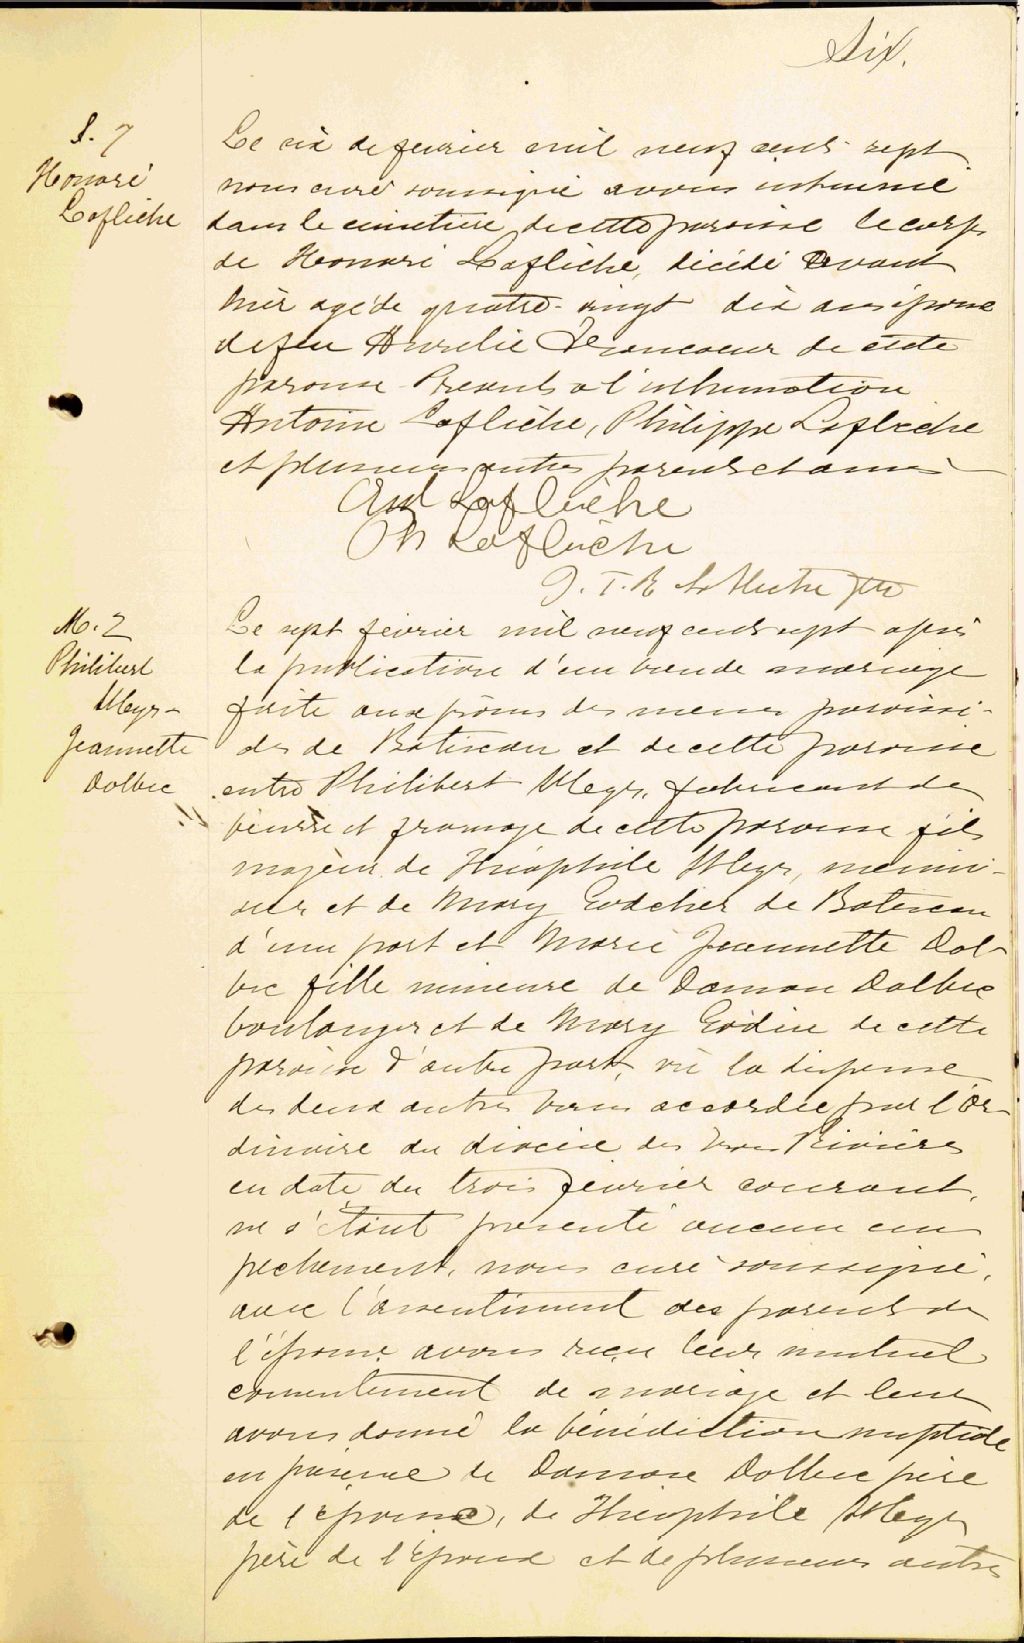 Six.
S. 7
Honoré
Laflèche
Le six de fevrier mil neuf cent sept
nous curé soussigné avons inhumé
dans le cimetière de cette paroisse le corps
de Honoré Laflèche, décédé avant
hièr agé de quatre-vingt dix ans époux
de feu Aurelie Francoeur de cette
paroisse Présents a l'inhumation
Antoine Laflèche, Philippe Laflèche
et plusieurs autres parents et amis
Ant Laflèche
Ph Laflèche
J. T. R ptre
M. 2
Philibert
Jeannette
Dolbec
Le sept fevrier mil neuf cent sept après
la publication d'un bande mariage
faite aux prônes des messes paroissi-
des de Batiscan et de cette paroisse
entre Philibert fabricant de
beurre et fromage de cette paroisse fils
majeur de Théophile menui-
sier et de Mary de Batiscan
d'une part et Marie Jeannette Dol-
bec fille mineure de Damase Dolbec
boulanger et de Mary Godin de cette
paroisse d'autre part, vu la dispense
des deux autres bans accordée par l'Or-
dinaire du diocèse des Trois Rivières
en date du trois fevrier courant,
ne s'étant presenté aucun em
pechement, nous curé soussigné,
avec l'assentiment des parents de
l'épouse avons reçu leur mutuel
consentement de mariage et leur
avons donné la bénédiction nuptiale
en présence de Damase Dolbec père
de l'épouse, de Théophile
père de l'époux et de plusieurs autres